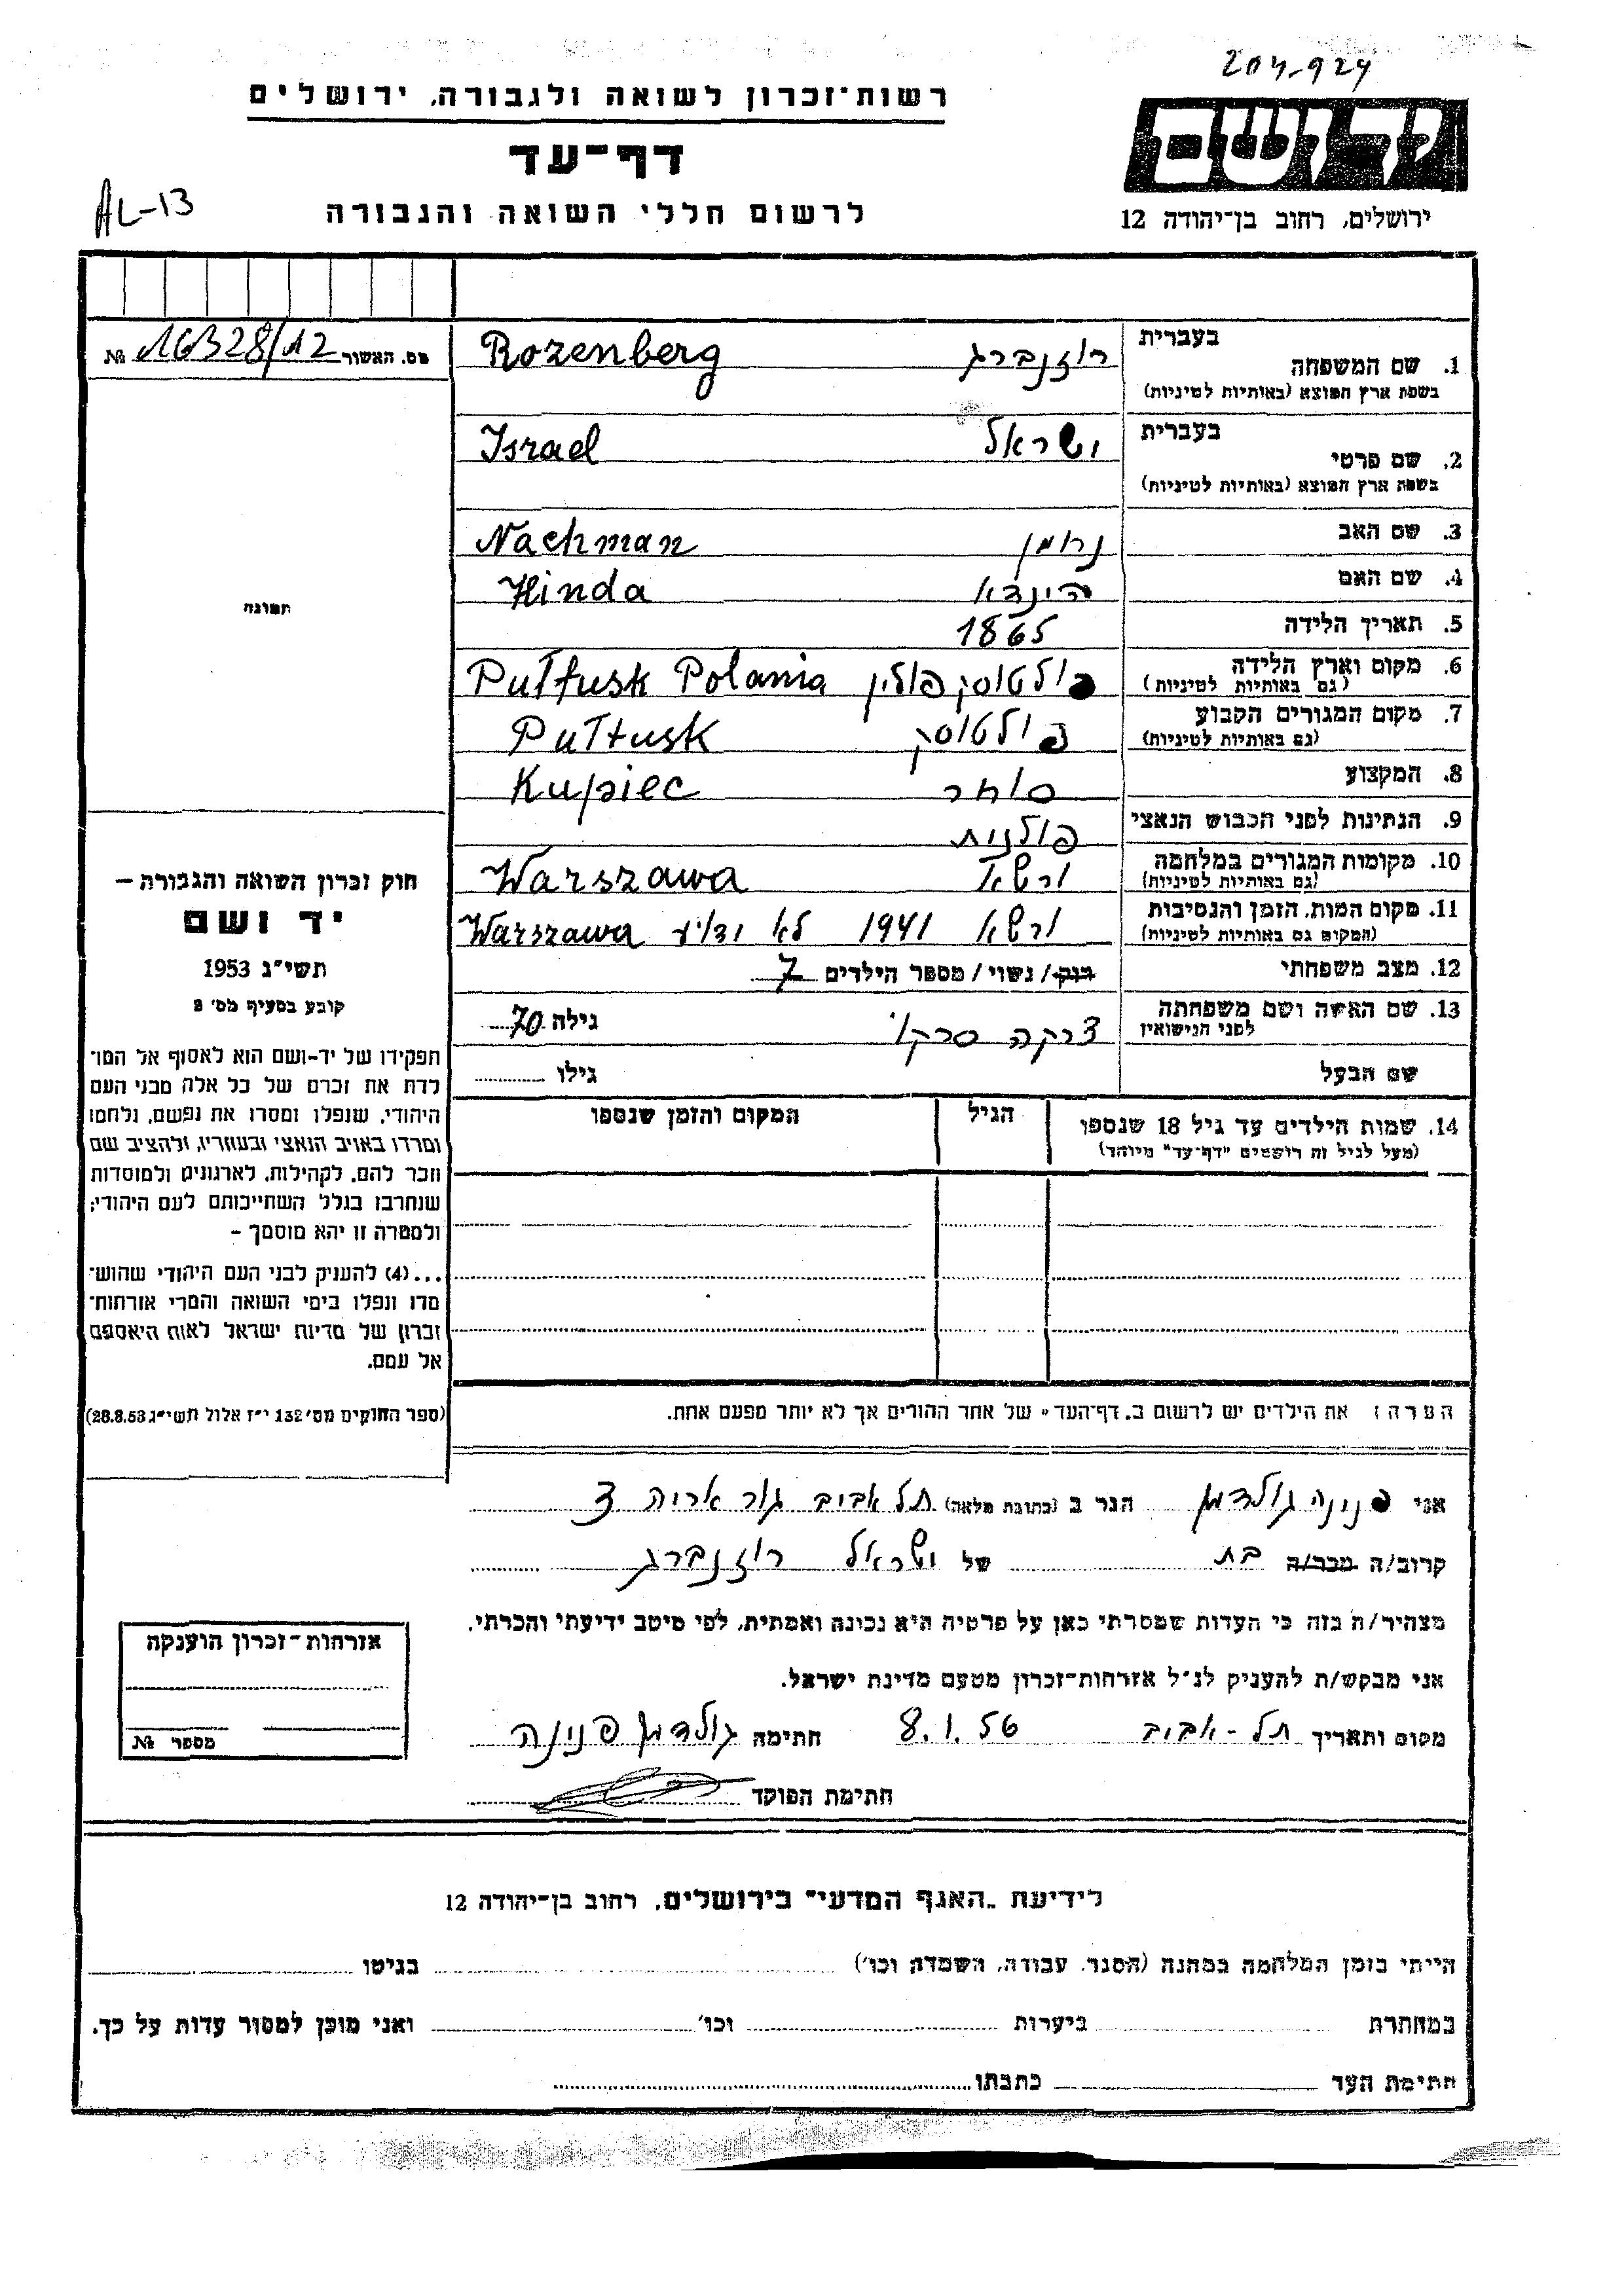 204-924
רשות-זכרון לשואה ולגבורה, ירושלים
יד ושם
דף-עד
AL-13
לרשום חללי השואה והגבורה
ירושלים, רחוב בן-יהודה 12
מס. האשור 16328/12 №
בעברית
1. שם המשפחה רוזנברג Rozenberg
בשפת ארץ המוצא (באותיות לטיניות)
בעברית
2. שם פרטי ישראל Israel
בשפת ארץ המוצא (באותיות לטיניות)
3. שם האב נחמן Nachman
4. שם האם הינדא Hinda
5. תאריך הלידה 1865
6. מקום וארץ הלידה פולטוסק פולין Pułtusk Polania
(גם באותיות לטיניות)
7. מקום המגורים הקבוע פולטוסק Pułtusk
(גם באותיות לטיניות)
8. המקצוע סוחר Kupiec
9. הנתינות לפני הכבוש הנאצי פולנית
10. מקומות המגורים במלחמה ורשא Warszawa
(גם באותיות לטיניות)
11. מקום המות, הזמן והנסיבות ורשא 1941 לא ידוע Warszawa
(המקום גם באותיות לטיניות)
12. מצב משפחתי רווק/נשוי/מספר הילדים 7
13. שם האשה ושם משפחתה
לפני הנישואין גילה 70
שם הבעל גילו
14. שמות הילדים עד גיל 18 שנספו הגיל המקום והזמן שנספו
(מעל לגיל זה רושמים "דף-עד" מיוחד)
הערה: את הילדים יש לרשום ב„דף-העד" של אחד ההורים אך לא יותר מפעם אחת.
תמונה
חוק זכרון השואה והגבורה –
יד ושם
תשי"ג 1953
קובע בסעיף מס' 2
תפקידו של יד-ושם הוא לאסוף אל המו־
לדת את זכרם של כל אלה מבני העם
היהודי, שנפלו ומסרו את נפשם, נלחמו
ומרדו באויב הנאצי ובעוזריו, ולהציב שם
וזכר להם, לקהילות, לארגונים ולמוסדות
שנחרבו בגלל השתייכותם לעם היהודי;
ולמטרה זו יהא מוסמך –
...(4) להעניק לבני העם היהודי שהוש־
מדו ונפלו בימי השואה והמרי אזרחות־
זכרון של מדינת ישראל לאות היאספם
אל עמם.
(ספר החוקים מס' 132 י"ז אלול תשי"ג 28.8.53)
אני פנינה גולדמן הגר ב (כתובת מלאה) תל אביב גור אריה 3
קרוב/ה מכר/ה בת של ישראל רוזנברג
מצהיר/ה בזה כי העדות שמסרתי כאן על פרטיה היא נכונה ואמתית, לפי מיטב ידיעתי והכרתי.
אני מבקש/ת להעניק לנ"ל אזרחות-זכרון מטעם מדינת ישראל.
מקום ותאריך תל-אביב 8.1.56 חתימה גולדמן פנינה
חתימת הפוקד
אזרחות-זכרון הוענקה
מספר №
לידיעת „האגף המדעי" בירושלים, רחוב בן-יהודה 12
הייתי בזמן המלחמה במחנה (הסגר, עבודה, השמדה וכו') בגיטו
במחתרת ביערות וכו' ואני מוכן למסור עדות על כך.
חתימת העד כתבתו